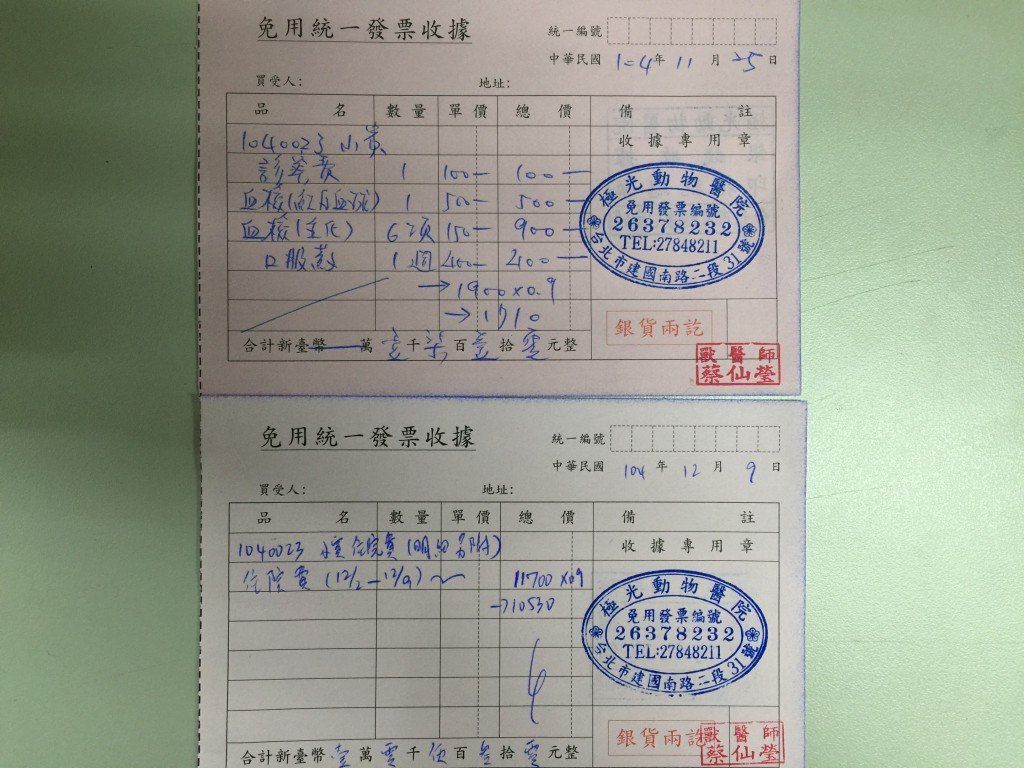 免用統一發票收據
統一編號
中華民國 104年 11月 25日
買受人: 地址:
品名 數量 單價 總價 備註
1040023 小貴 收據專用章
診察費 1 100— 100—
血檢(紅白血球) 1 500— 500—
血檢(生化) 6項 150— 900—
口服藥 1週 400— 400—
→1900×0.9
→1710
合計新臺幣 萬壹千柒百壹拾零元整
極光動物醫院
免用發票編號
26378232
TEL:27848211
台北市建國南路二段31號
銀貨兩訖
獸醫師
蔡仙瑩
免用統一發票收據
統一編號
中華民國 104年 12月 9日
買受人: 地址:
品名 數量 單價 總價 備註
1040023 住院費(明細另附) 收據專用章
住院費(12/2—12/9) 11700×0.9
→10530
合計新臺幣壹萬零千伍百叁拾零元整
極光動物醫院
免用發票編號
26378232
TEL:27848211
台北市建國南路二段31號
銀貨兩訖
獸醫師
蔡仙瑩